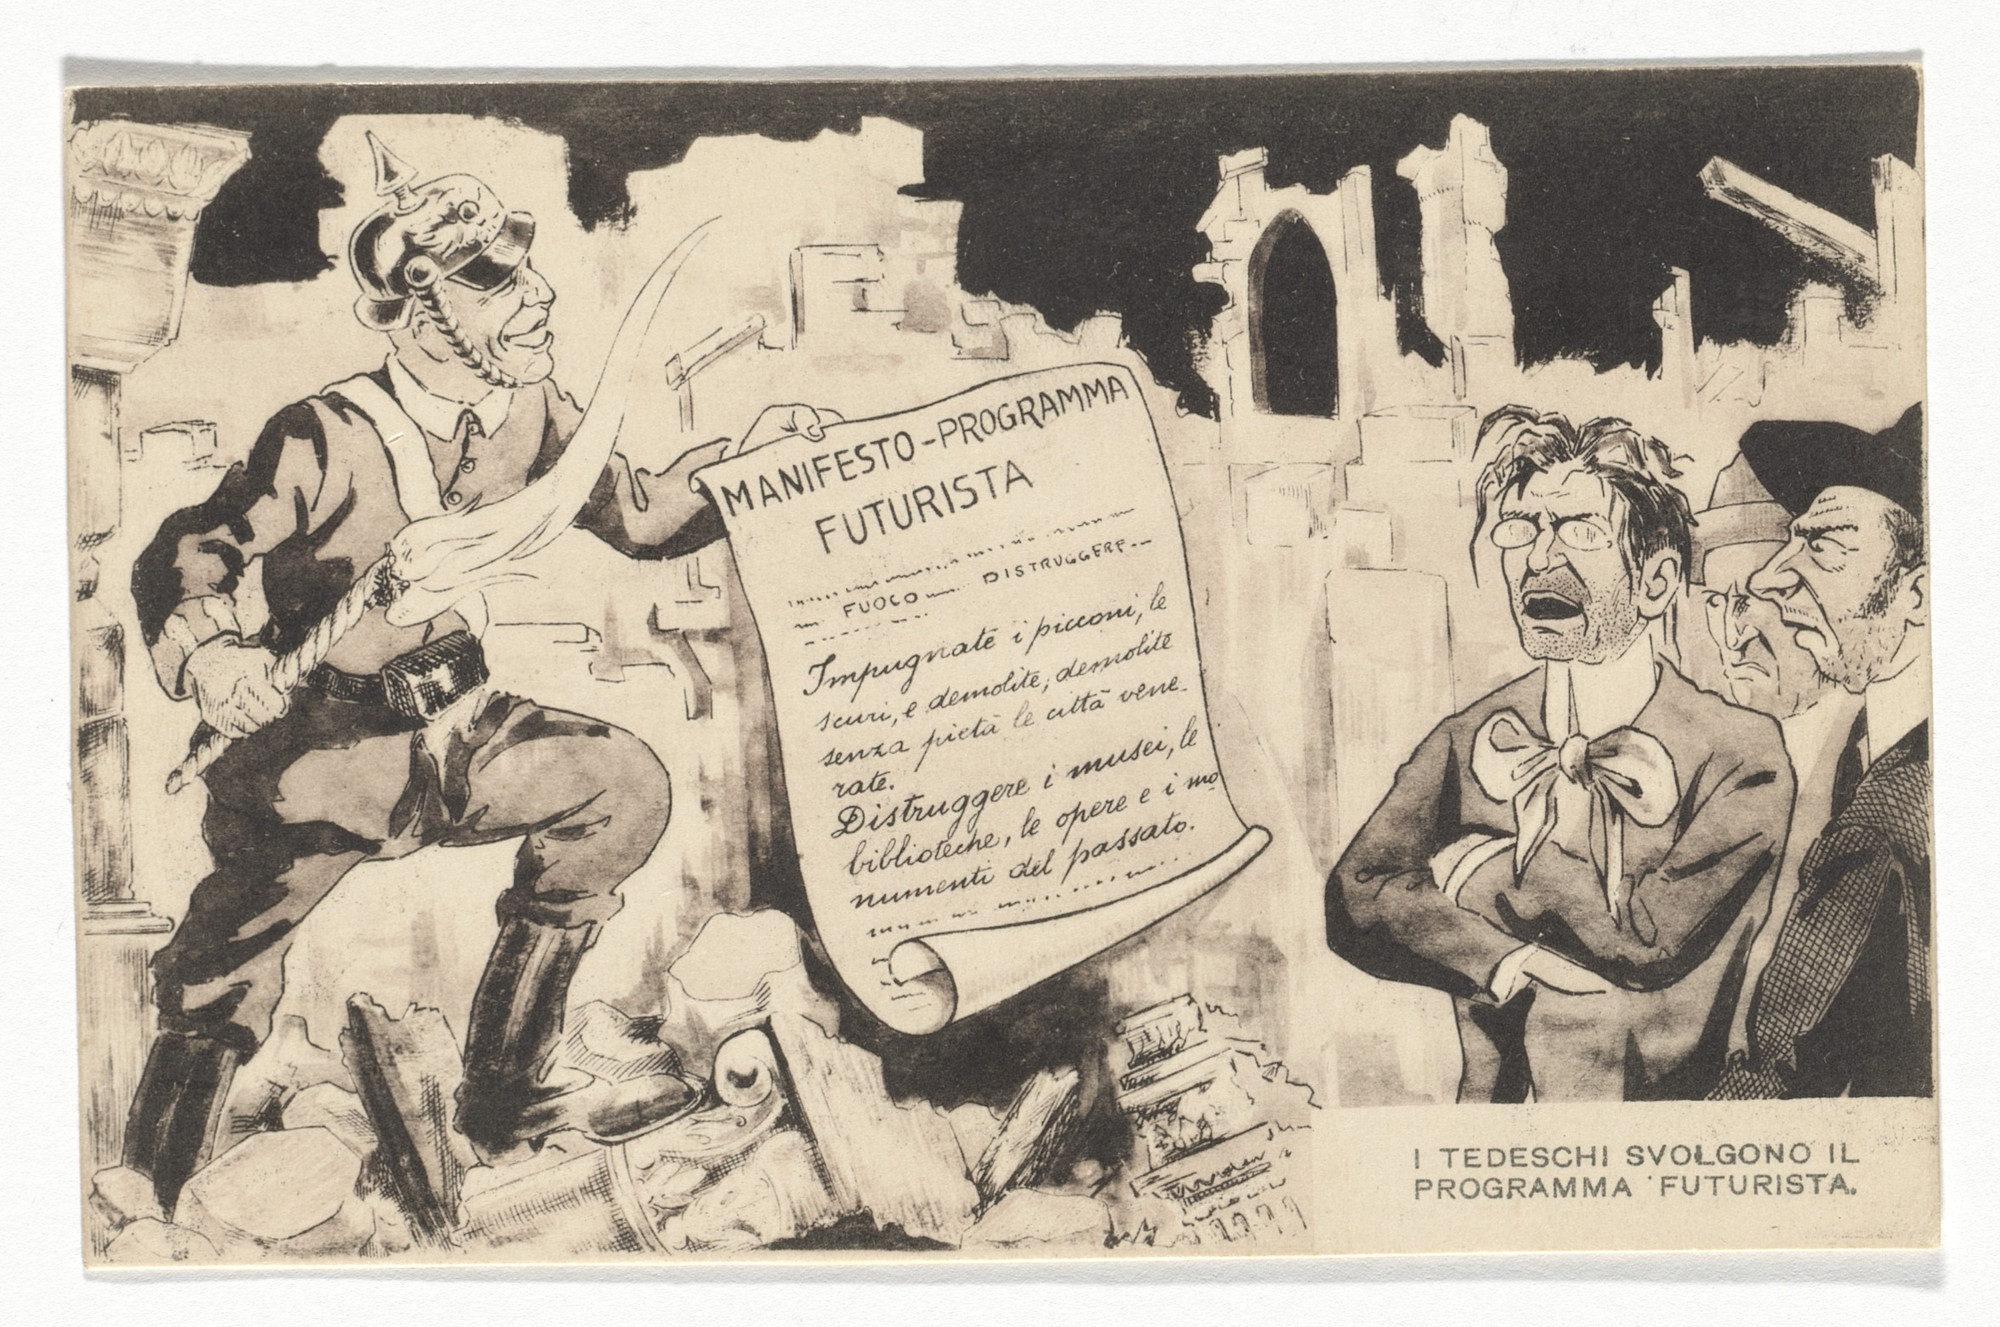 MANIFESTO-PROGRAMMA
FUTURISTA
DISTRUGGERE
FUOCO
Impugnate i picconi, le
scuri, e demolite, demolite
senza pietà le città vene-
rate.
Distruggere i musei, le
biblioteche, le opere e i mo
numenti del passato.
I TEDESCHI SVOLGONO IL
PROGRAMMA FUTURISTA.